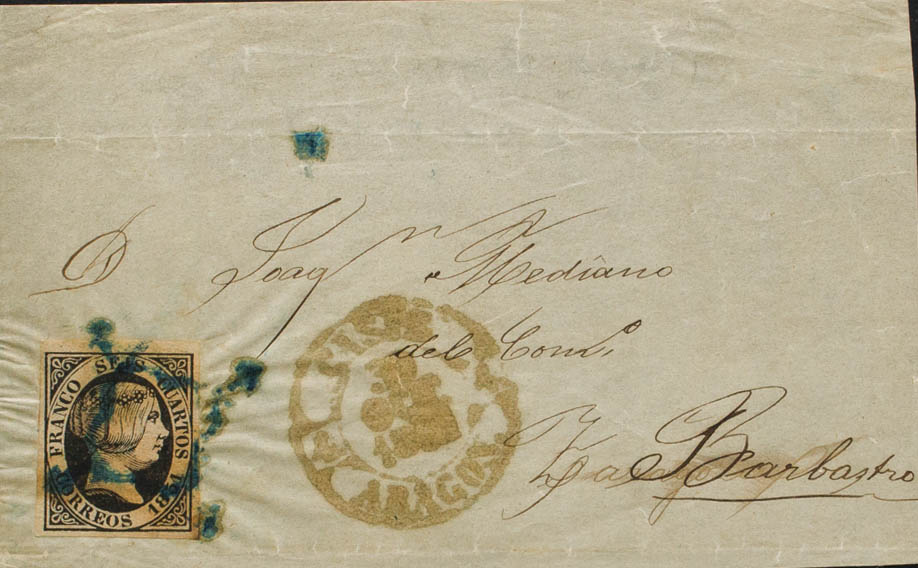 D Joaqn Mediano
del Como
Barbastro
FRANCO SEIS CUARTOS
CORREOS 1851
ARAGON